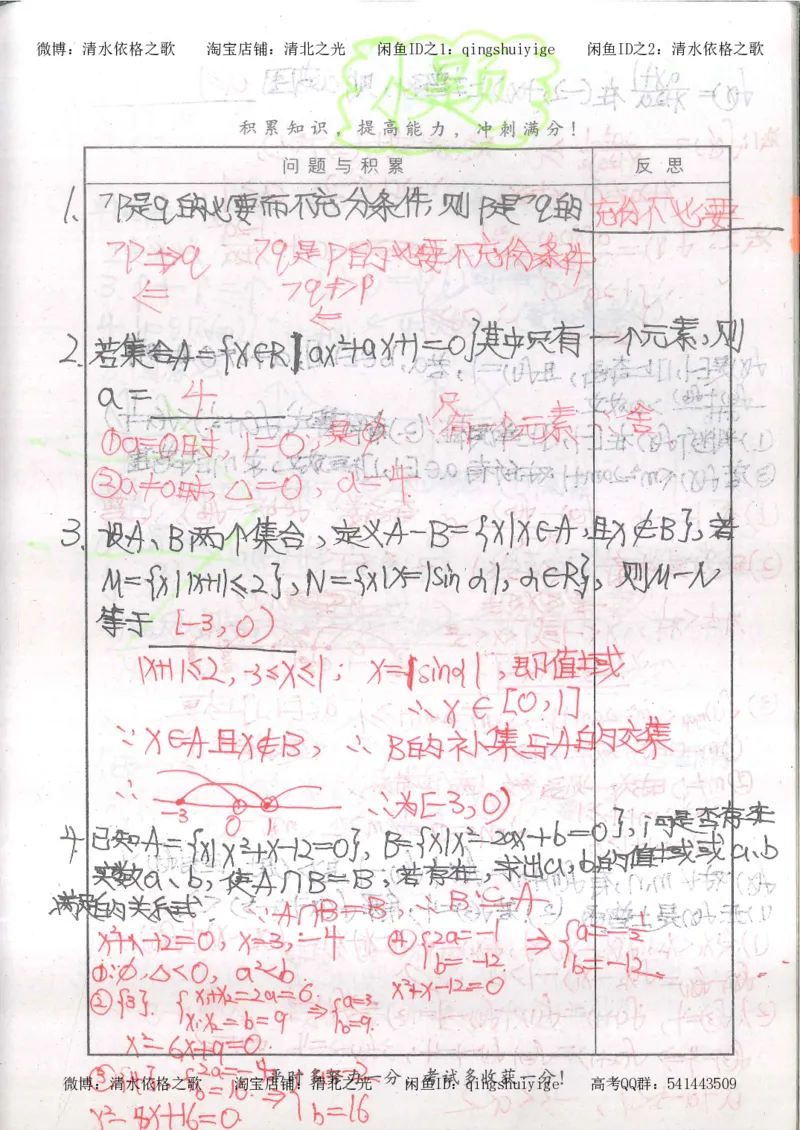 微博：清水依格之歌 淘宝店铺：清北之光 闲鱼ID之1：qingshuiyige 闲鱼ID之2：清水依格之歌
小题
积累知识，提高能力，冲刺满分！
问题与积累 反思
1. ¬P是q的必要而不充分条件，则P是¬q的 充分不必要
¬P⇏q ¬q是P的必要不充分条件
⇐ ¬q⇏P
⇐
2. 若集合A={x∈R|ax²+ax+1=0}其中只有一个元素，则
a= 4
①a=0时，1=0， ∵只有一个元素 ∴舍
②a≠0时，△=0，a=4.
3. 设A、B两个集合，定义A-B={x|x∈A，且x∉B}，若
M={x||x+1|≤2}，N={x|x=|sinα|，α∈R}，则M-N
等于 [-3,0)
|x+1|≤2，-3≤x≤1； x=|sinα|，即值域
∴x∈[0,1]
∵x∈A且x∉B，∴B的补集与A的交集
∴ -3 0 1 ∴为[-3,0)
4. 已知A={x|x²+x-12=0}，B={x|x²-2ax+b=0}，问是否存在
实数a、b，使A∩B=B，若存在，求出a，b的值域或a、b
满足的关系式. ∵A∩B=B，∴B⊆A
x²+x-12=0，x=3，-4 ④{2a=-1 ⇒{a=-1/2
①∅，△<0，a²<b b=-12 b=-12.
②{3}. {x₁+x₂=2a=6 ⇒{a=3. x²+x-12=0
x₁x₂=b=9 b=9.
x²-6x+9=0
平时多努力一分，考试多收获一分！
微博：清水依格之歌 淘宝店铺：清北之光 闲鱼ID：qingshuiyige 高考QQ群：541443509
b=16 ⇒ b=16
x²-8x+16=0